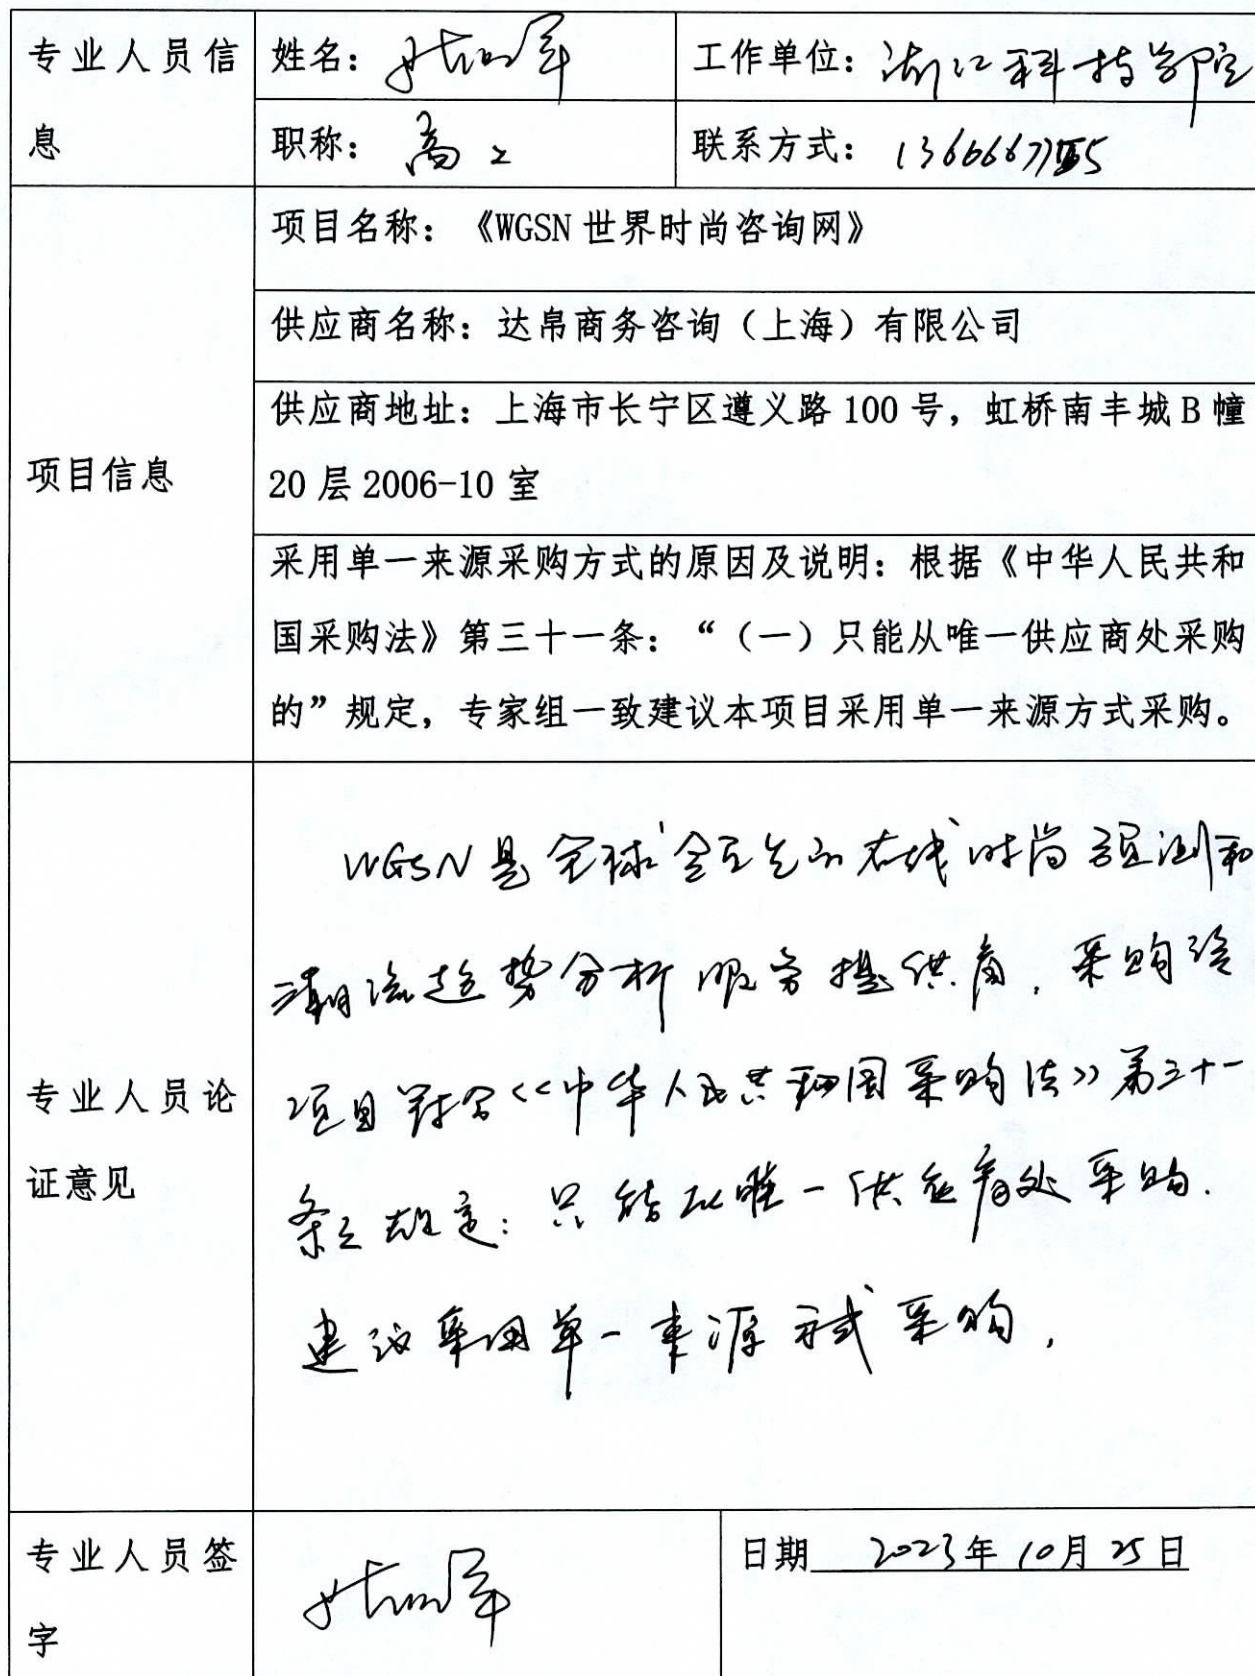 专业人员信息
姓名：
工作单位：浙江科技学院
职称：高工
联系方式：
项目信息
项目名称：《WGSN世界时尚咨询网》
供应商名称：达帛商务咨询（上海）有限公司
供应商地址：上海市长宁区遵义路100号，虹桥南丰城B幢
20层2006-10室
采用单一来源采购方式的原因及说明：根据《中华人民共和
国采购法》第三十一条：“（一）只能从唯一供应商处采购
的”规定，专家组一致建议本项目采用单一来源方式采购。
专业人员论
证意见
WGSN是全球 在线时尚预测和
潮流趋势分析服务提供商，采购该
项目符合<<中华人民共和国采购法>>第三十一
条之规定：只能从唯一供应商处采购.
建议采用单一来源方式采购，
专业人员签
字
日期 2023年10月25日